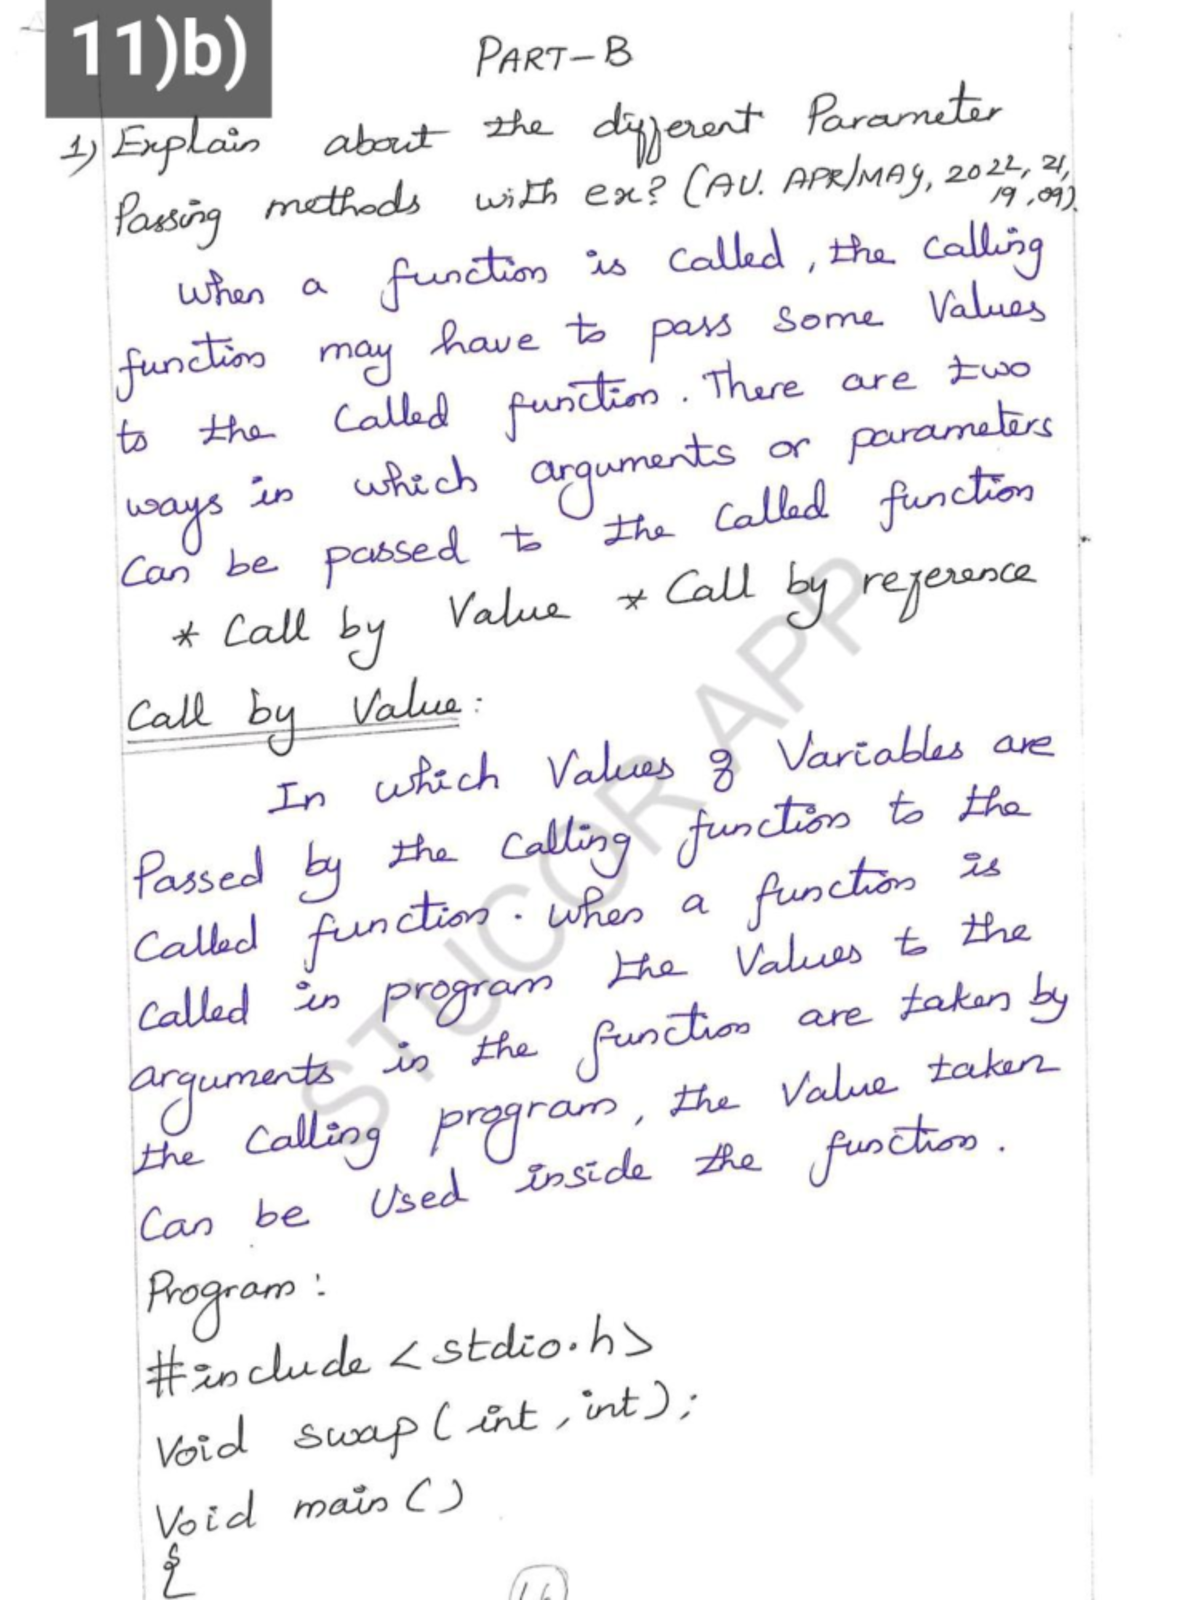 11)b)
PART-B
1) Explain about the different Parameter
Passing methods with ex? (AU. APR/MAY, 2022, 21,
19, 09).
When a function is called, the calling
function may have to pass some Values
to the Called function. There are two
ways in which arguments or parameters
Can be passed to the Called function
* Call by Value * Call by reference
Call by Value:
In which Values of Variables are
Passed by the Calling function to the
Called function. When a function is
Called in program the Values to the
arguments in the function are taken by
the Calling program, the Value taken
Can be Used inside the function.
Program:
#include <stdio.h>
Void swap (int, int);
Void main ()
{
STUCOR APP